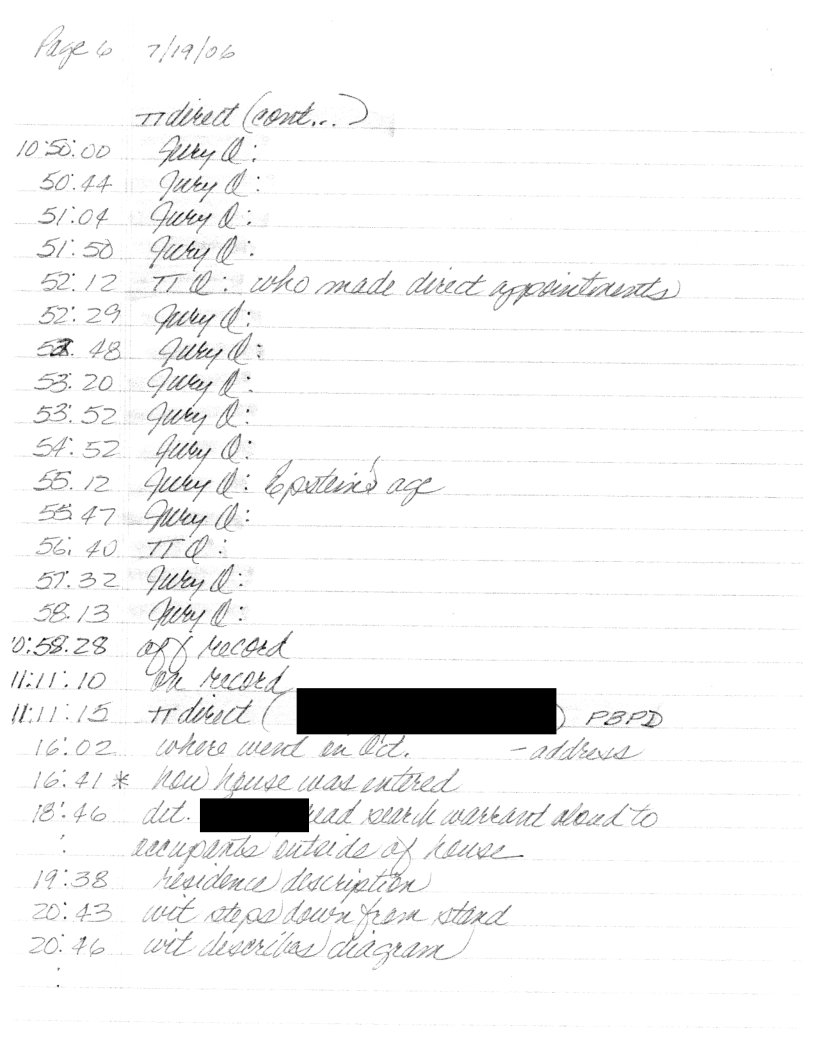 Page 6 7/19/06
π direct (cont...)
10:50:00 Jury Q:
50:44 Jury Q:
51:04 Jury Q:
51:50 Jury Q:
52:12 π Q: who made direct appointments
52:29 Jury Q:
52:48 Jury Q:
53:20 Jury Q:
53:52 Jury Q:
54:52 Jury Q:
55:12 Jury Q: Epstein's age
55:47 Jury Q:
56:40 π Q:
57:32 Jury Q:
58:13 Jury Q:
10:58:28 off record
11:11:10 on record
11:11:15 π direct ( ) PBPD
16:02 where went in Oct. - address
16:41 * how house was entered
18:46 det. read search warrant aloud to
: occupants outside of house
19:38 residence description
20:43 wit steps down from stand
20:46 wit describes diagram
: